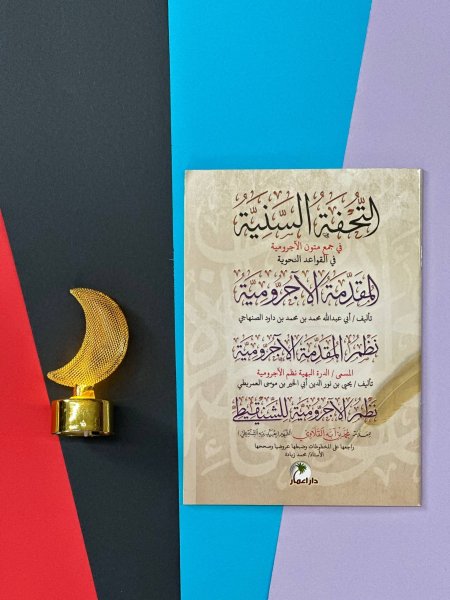 التُّحْفَةُ السَّنِيَّةُ
في جمع متون الآجرومية
في القواعد النحوية
المُقَدِّمَةُ الآجُرُّومِيَّةُ
تأليف / أبي عبدالله محمد بن محمد بن داود الصنهاجي
نَظْمُ المُقَدِّمَةِ الآجُرُّومِيَّةِ
المسمى / الدرة البهية نظم الآجرومية
تأليف / يحيى بن نور الدين أبي الخير بن موسى العمريطي
نَظْمُ الآجُرُّومِيَّةِ لِلشِّنْقِيطِيِّ
راجعها على المخطوطات وضبطها عروضيا وصححها
الأستاذ/ محمد زيادة
دار اعمار